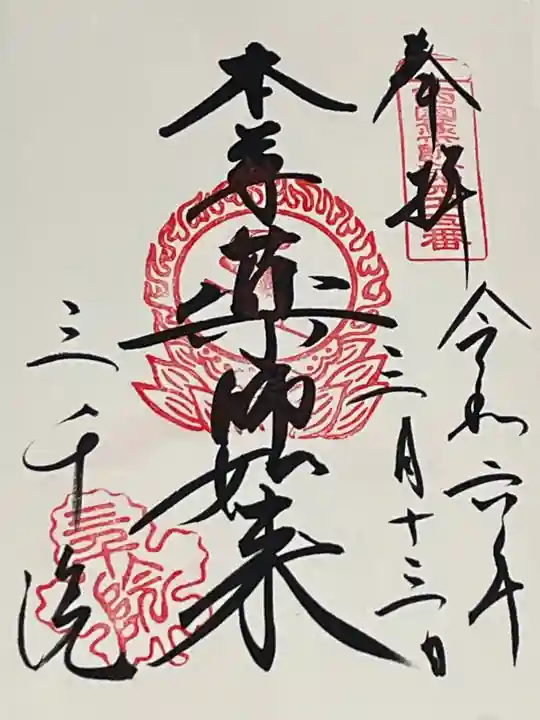 奉拝
令和六年
三月十三日
本尊薬師如来
三千院